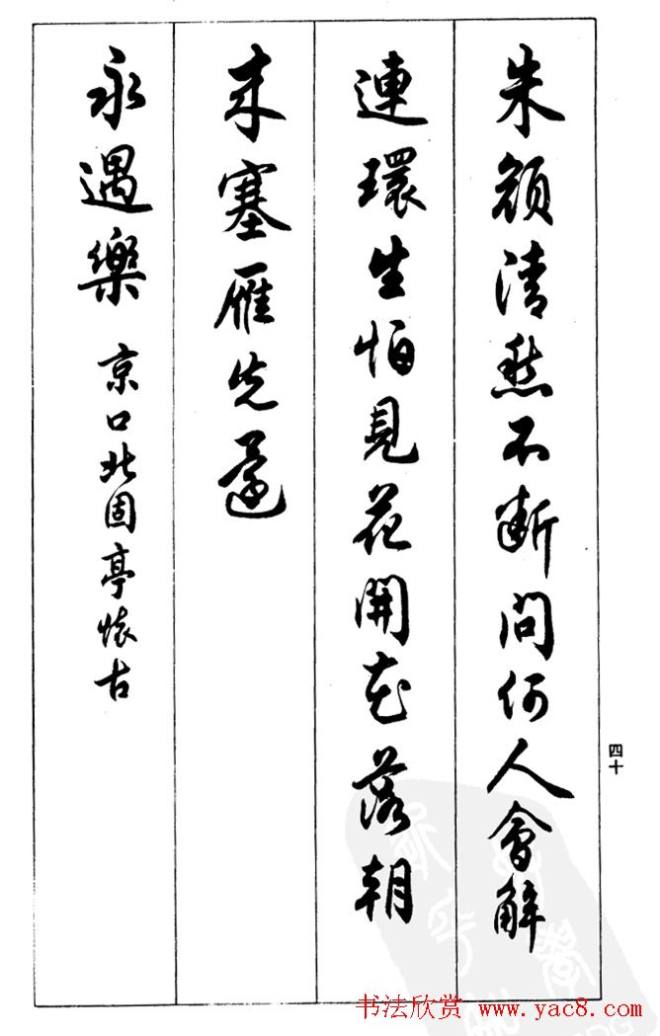 朱顏清愁不斷問何人會解
連環生怕見花開花落朝
来塞雁先還
永遇樂 京口北固亭懷古
四十
书法欣赏 www.yac8.com